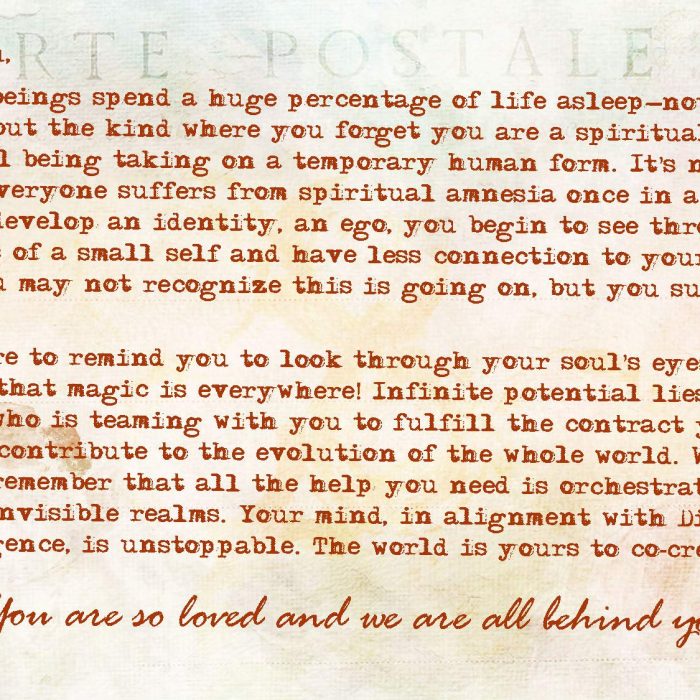 RTE POSTALE
beings spend a huge percentage of life asleep—no
but the kind where you forget you are a spiritual
l being taking on a temporary human form. It's n
everyone suffers from spiritual amnesia once in a
develop an identity, an ego, you begin to see thr
of a small self and have less connection to your
u may not recognize this is going on, but you su
re to remind you to look through your soul's eye
that magic is everywhere! Infinite potential lies
who is teaming with you to fulfill the contract
contribute to the evolution of the whole world. W
remember that all the help you need is orchestrat
nvisible realms. Your mind, in alignment with Di
gence, is unstoppable. The world is yours to co-cre
You are so loved and we are all behind yo